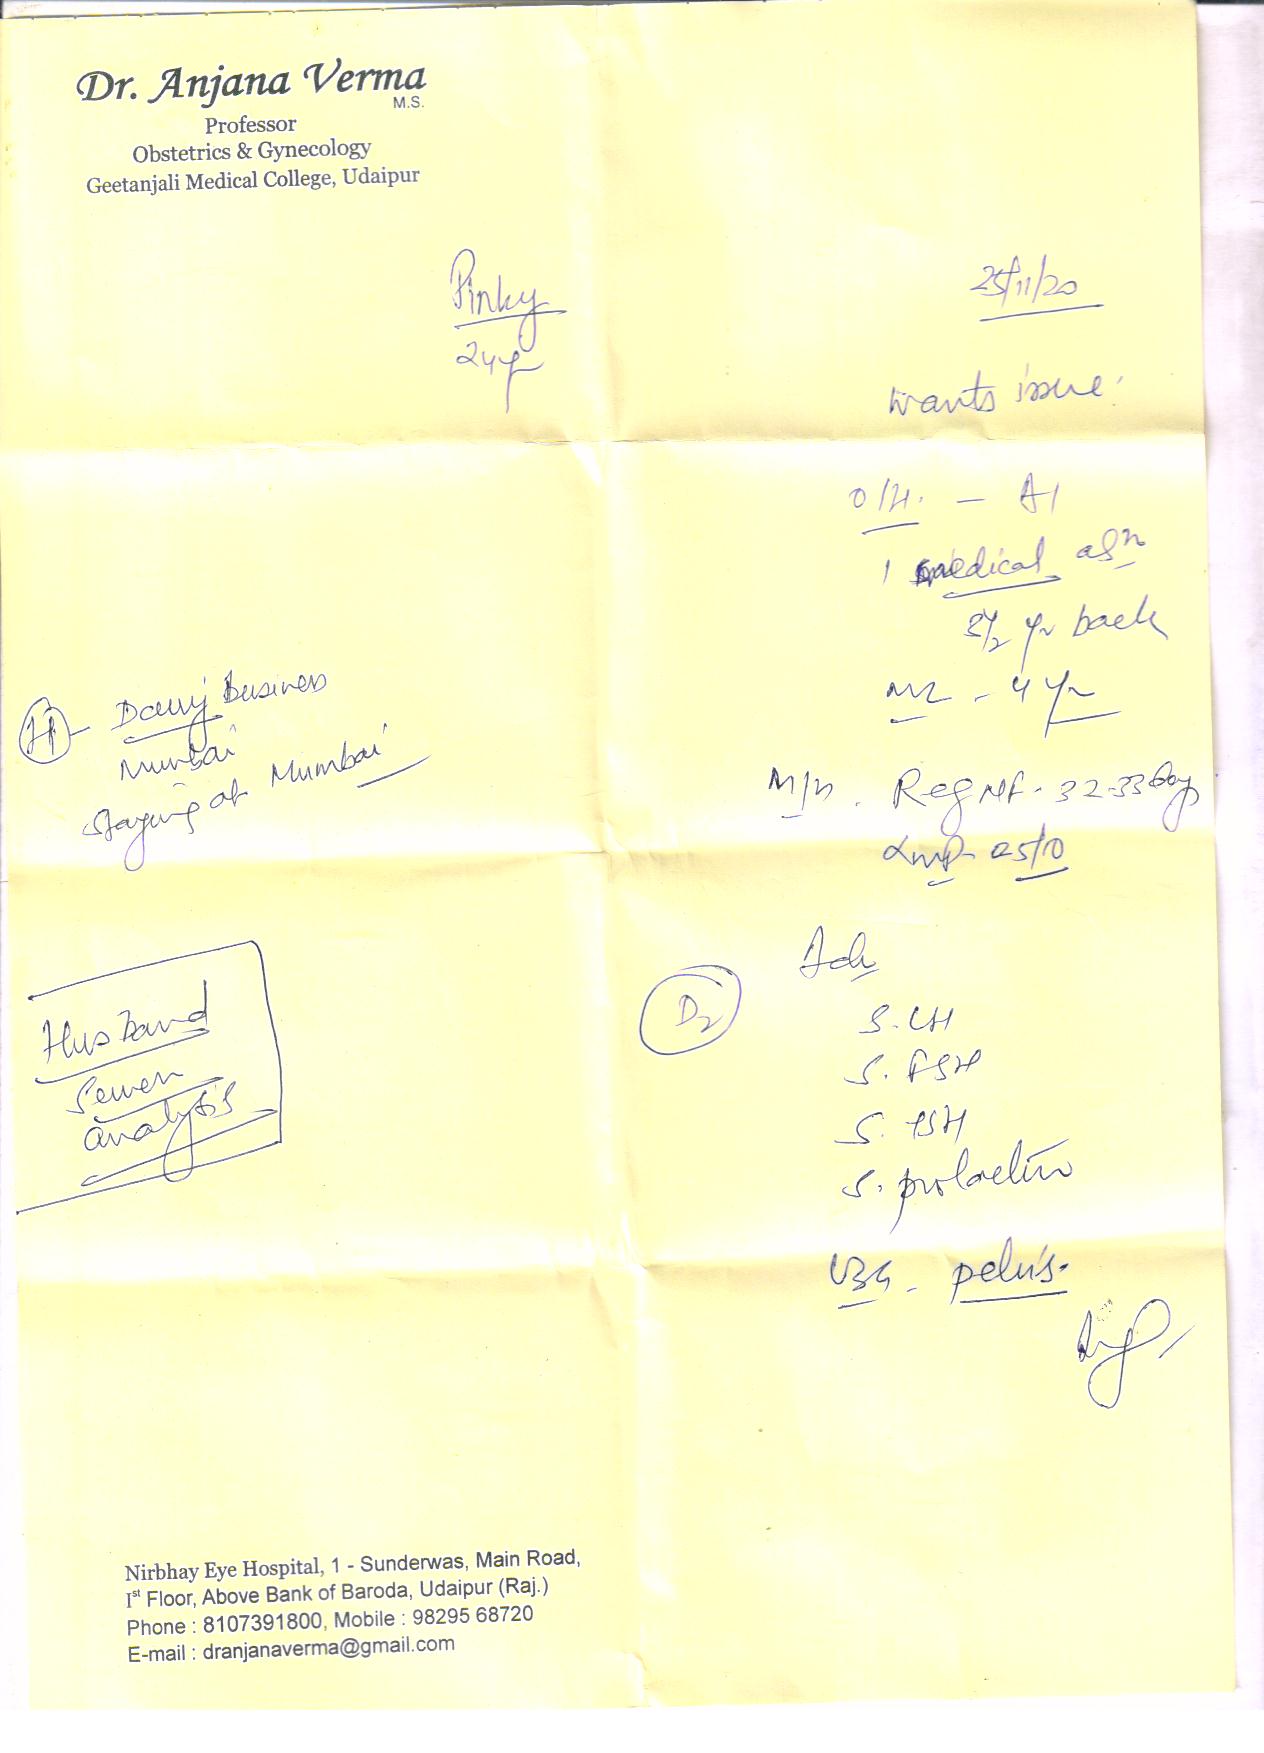 Dr. Anjana Verma
M.S.
Professor
Obstetrics & Gynecology
Geetanjali Medical College, Udaipur
Pinky
24 yr
25/11/20
wants issue
O/H. - A1
1 medical abn
yr back
4 yr
M/H. Reg MF - 32-33 days
LMP - 25/10
H - Dairy Business
Mumbai
Staying at Mumbai
Adv
D2
S. LH
S. FSH
S. TSH
S. prolactin
USG - pelvis.
Husband
Semen
analysis
Nirbhay Eye Hospital, 1 - Sunderwas, Main Road,
Ist Floor, Above Bank of Baroda, Udaipur (Raj.)
Phone : 8107391800, Mobile : 98295 68720
E-mail : dranjanaverma@gmail.com